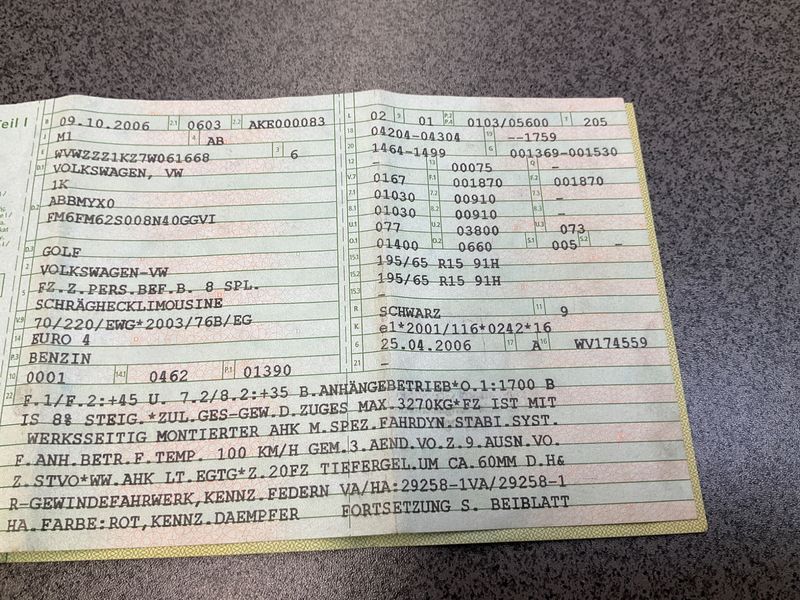 Teil I
B 09.10.2006 2.1 0603 2.2 AKE000083
J M1 4 AB
E WVWZZZ1KZ7W061668 3 6
D.1 VOLKSWAGEN, VW
1K
D.2 ABBMYX0
FM6FM62S008N40GGVI
D.3 GOLF
2 VOLKSWAGEN-VW
5 FZ.Z.PERS.BEF.B. 8 SPL.
SCHRÄGHECKLIMOUSINE
V.9 70/220/EWG*2003/76B/EG
14 EURO 4
P.3 BENZIN
10 0001 14.1 0462 P.1 01390
L 02 9 01 P.2 P.4 0103/05600 T 205
18 04204-04304 19 --1759
20 1464-1499 G 001369-001530
12 - 13 00075 Q -
V.7 0167 F.1 001870 F.2 001870
7.1 01030 7.2 00910 7.3 -
8.1 01030 8.2 00910 8.3 -
U.1 077 U.2 03800 U.3 073
O.1 01400 O.2 0660 S.1 005 S.2 -
15.1 195/65 R15 91H
15.2 195/65 R15 91H
15.3 -
R SCHWARZ 11 9
K e1*2001/116*0242*16
6 25.04.2006 17 A 16 WV174559
21 -
22 F.1/F.2:+45 U. 7.2/8.2:+35 B.ANHÄNGEBETRIEB*O.1:1700 B
IS 8% STEIG.*ZUL.GES-GEW.D.ZUGES MAX.3270KG*FZ IST MIT
WERKSSEITIG MONTIERTER AHK M.SPEZ.FAHRDYN.STABI.SYST.
F.ANH.BETR.F.TEMP. 100 KM/H GEM.3.AEND.VO.Z.9.AUSN.VO.
Z.STVO*WW.AHK LT.EGTG*Z.20FZ TIEFERGEL.UM CA.60MM D.H&
R-GEWINDEFAHRWERK,KENNZ.FEDERN VA/HA:29258-1VA/29258-1
HA.FARBE:ROT,KENNZ.DAEMPFER FORTSETZUNG S. BEIBLATT